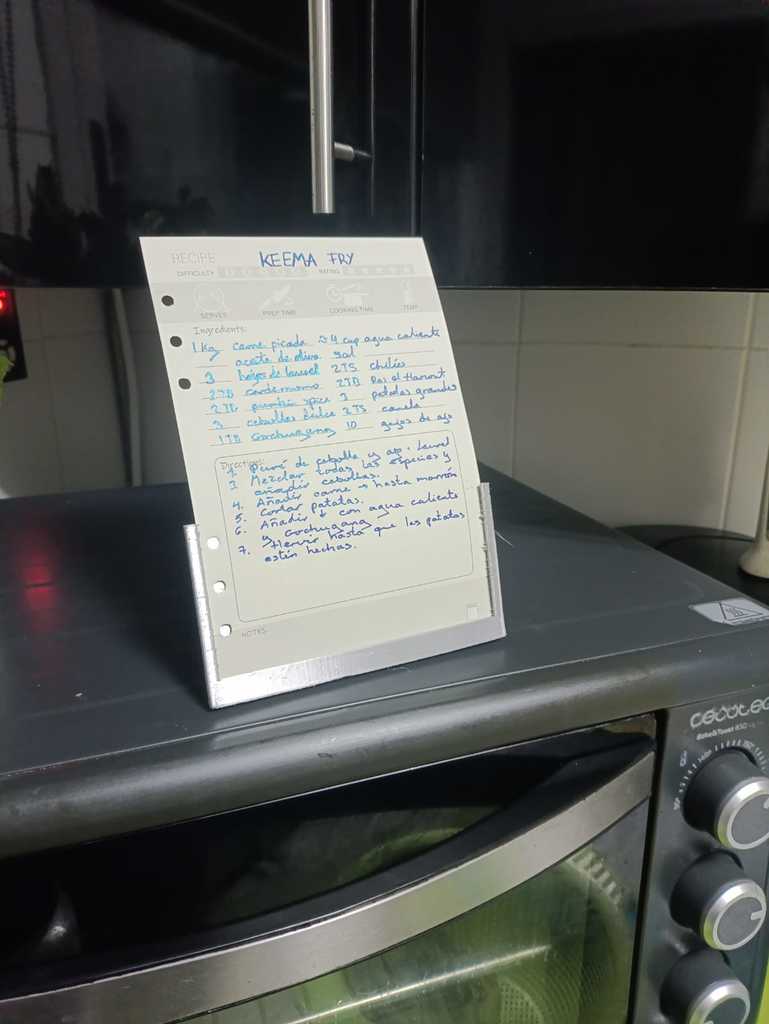 RECIPE KEEMA FRY
DIFFICULTY RATING
SERVES PREP TIME COOKING TIME TEMP
Ingredients:
1 Kg carne picada 4 cup agua caliente
aceite de oliva sal
3 hojas de laurel 2TS chiles
2TB cardamomo 2TB Ras el Hanout
2TB pumpkin spice 3 patatas grandes
3 cebollas dulce 2TS canela
1TB Gochugang 10 gajos de ajo
Directions:
1. Puré de cebolla y ajo. Laurel
3. Mezclar todas las especies y
añadir cebollas.
4. Añadir carne → hasta marrón
5. Cortar patatas.
6. Añadir ↓ con agua caliente
y Gochugang
7. Hervir hasta que las patatas
estén hechas.
NOTES
cecotec
Bake&Toast